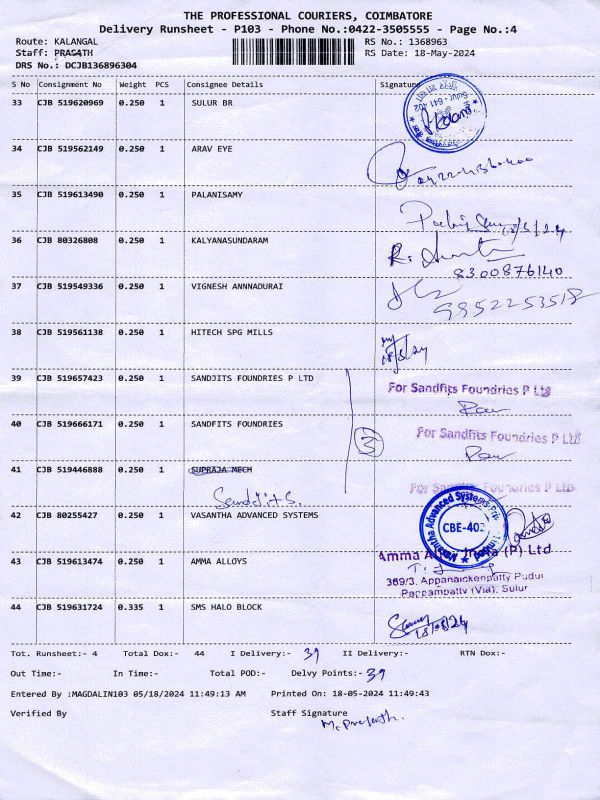 THE PROFESSIONAL COURIERS, COIMBATORE
Delivery Runsheet - P103 - Phone No.:0422-3505555 - Page No.:4
Route: KALANGAL
RS No.: 1368963
Staff: PRASATH
RS Date: 18-May-2024
DRS No.: DCJB136896304
S No Consignment No Weight PCS Consignee Details Signature
33 CJB 519620969 0.250 1 SULUR BR
34 CJB 519562149 0.250 1 ARAV EYE
35 CJB 519613490 0.250 1 PALANISAMY
36 CJB 80326808 0.250 1 KALYANASUNDARAM
8300876140
37 CJB 519549336 0.250 1 VIGNESH ANNNADURAI
9952253518
38 CJB 519561138 0.250 1 HITECH SPG MILLS
18/5/24
39 CJB 519657423 0.250 1 SANDJITS FOUNDRIES P LTD
For Sandfits Foundries P Ltd
40 CJB 519666171 0.250 1 SANDFITS FOUNDRIES
3
For Sandfits Foundries P Ltd
41 CJB 519446888 0.250 1 SUPRAJA MECH
For Sandfits Foundries P Ltd
42 CJB 80255427 0.250 1 VASANTHA ADVANCED SYSTEMS
Vasantha Advanced Systems
CBE-402
43 CJB 519613474 0.250 1 AMMA ALLOYS
Amma (P) Ltd
369/3, Appanaickenpatty Pudur
Pappampatty (Via), Sulur
44 CJB 519631724 0.335 1 SMS HALO BLOCK
18/05/24
Tot. Runsheet:- 4 Total Dox:- 44 I Delivery:- 39 II Delivery:- RTN Dox:-
Out Time:- In Time:- Total POD:- Delvy Points:- 39
Entered By :MAGDALIN103 05/18/2024 11:49:13 AM Printed On: 18-05-2024 11:49:43
Verified By Staff Signature
M. Prasath.